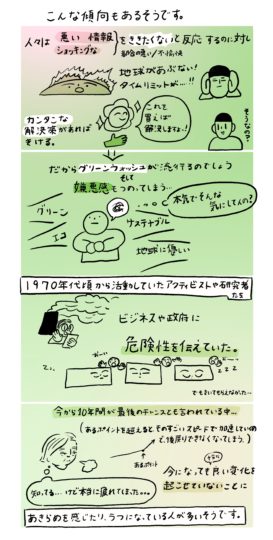 こんな傾向もあるそうです。
人々は
悪い 情報
ショッキングな
をききたくないと反応するのに対し
都合の悪い/不愉快
地球があぶない!
タイムリミットが…!!
カンタンな
解決策があれば
きける。
これを
買えば
解決しますよ!
そうなの?
だからグリーンウォッシュが流行るのでしょう
そして
嫌悪感もつのってしまう…
本気でそんな
気にしてんの?
グリーン
サステナブル
エコ
地球に優しい
1970年代頃から活動していたアクティビストや研究者
たち
ビジネスや政府に
危険性を伝えていた。
でもきいてもらえなかった…
今から10年間が最後のチャンスとも言われている中…
(あるポイントを超えるとものすごいスピードで加速していくの
で、後戻りできなくなってしまう。)
あるポイント
今になっても良い変化を
起こせていないことに
知ってる…けど本当に疲れてしまった…
あきらめを感じたり、うつになっている人が多いそうです。